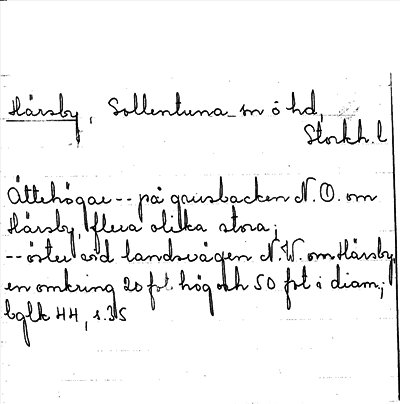 Hårsby, Sollentuna sn ö hd,
Stockh. l
Ättehögar -- på grusbacken N.O. om
Hårsby, flera olika stora;
-- öster vid landsvägen N.W. om Hårsby
en omkring 20 fot hög och 50 fot i diam;
bglk 44, s. 35